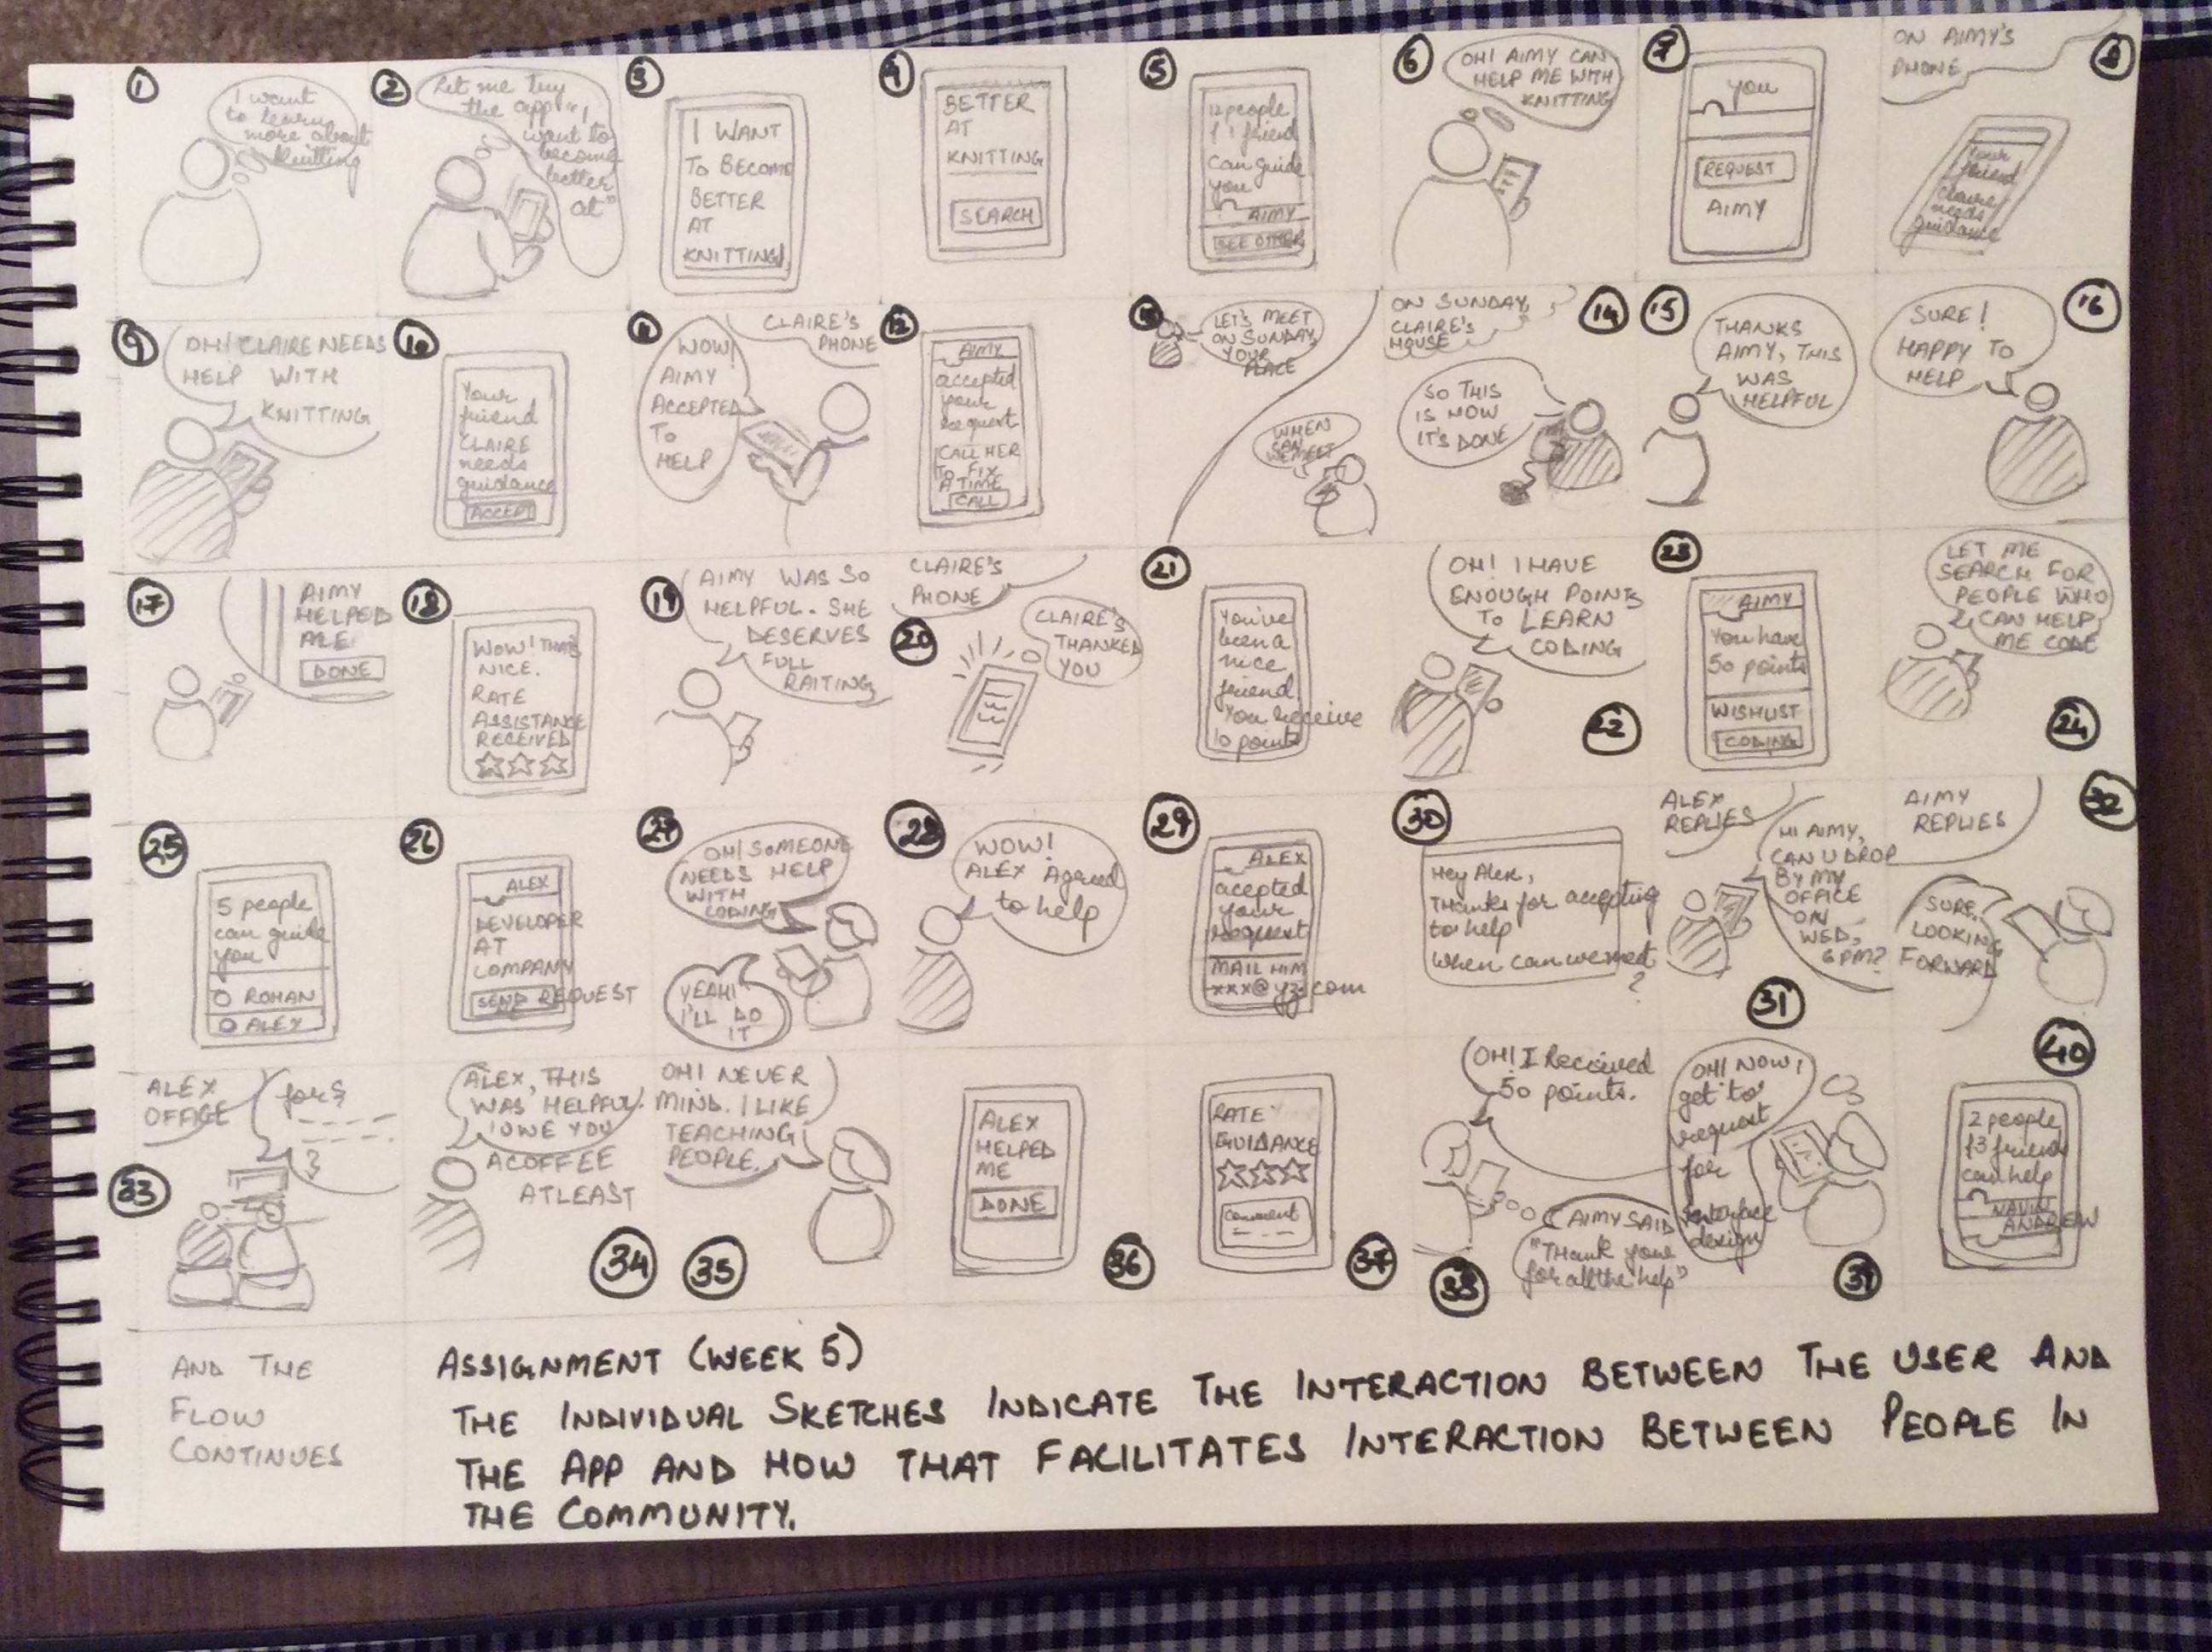 1
I want
to learn
more about
knitting
2
Let me try
the app "I
want to
become
better
at"
3
I WANT
TO BECOME
BETTER
AT
KNITTING
4
BETTER
AT
KNITTING
SEARCH
5
12 people
& 1 friend
can guide
you
AIMY
SEE OTHER
6
OH! AIMY CAN
HELP ME WITH
KNITTING
7
you
REQUEST
AIMY
ON AIMY'S
PHONE
8
Your
friend
claire
needs
guidance
9
OH! CLAIRE NEEDS
HELP WITH
KNITTING
10
Your
friend
CLAIRE
needs
guidance
ACCEPT
11
CLAIRE'S
PHONE
WOW!
AIMY
ACCEPTED
TO
HELP
12
AIMY
accepted
your
request
CALL HER
TO FIX
A TIME
CALL
13
LET'S MEET
ON SUNDAY,
YOUR
PLACE
WHEN
CAN
WE MEET
ON SUNDAY,
CLAIRE'S
HOUSE
14
SO THIS
IS HOW
IT'S DONE
15
THANKS
AIMY, THIS
WAS
HELPFUL
16
SURE!
HAPPY TO
HELP
17
AIMY
HELPED
ME
DONE
18
WOW! THAT'S
NICE.
RATE
ASSISTANCE
RECEIVED
19
AIMY WAS SO
HELPFUL. SHE
DESERVES
FULL
RAITING
CLAIRE'S
PHONE
20
CLAIRE'S
THANKED
YOU
21
You've
been a
nice
friend.
You receive
10 points
OH! I HAVE
ENOUGH POINTS
TO LEARN
CODING
22
23
AIMY
You have
50 points
WISHLIST
CODING
LET ME
SEARCH FOR
PEOPLE WHO
CAN HELP
ME CODE
24
25
5 people
can guide
you
ROHAN
ALEX
26
ALEX
DEVELOPER
AT
COMPANY
SEND REQUEST
27
OH! SOMEONE
NEEDS HELP
WITH
CODING
YEAH!
I'LL DO
IT
28
WOW!
ALEX Agreed
to help
29
ALEX
acepted
your
request
MAIL HIM
xxx@yz.com
30
Hey Alex,
Thanks for accepting
to help
When can we meet
?
ALEX
REPLIES
HI AIMY,
CAN U DROP
BY MY
OFFICE
ON
WED,
6 PM?
31
AIMY
REPLIES
32
SURE.
LOOKING
FORWARD
ALEX
OFFICE
for
?
33
ALEX, THIS
WAS HELPFUL.
I OWE YOU
A COFFEE
ATLEAST
34
OH! NEVER
MIND. I LIKE
TEACHING
PEOPLE.
35
ALEX
HELPED
ME
DONE
36
RATE
GUIDANCE
comment
37
OH! I Received
50 points.
AIMY SAID
"Thank you
for all the help"
38
OH! NOW I
get to
request
for
interface
design
39
40
2 people
& 3 friends
can help
NAVIN
ANDREW
AND THE
FLOW
CONTINUES
ASSIGNMENT (WEEK 5)
THE INDIVIDUAL SKETCHES INDICATE THE INTERACTION BETWEEN THE USER AND
THE APP AND HOW THAT FACILITATES INTERACTION BETWEEN PEOPLE IN
THE COMMUNITY.